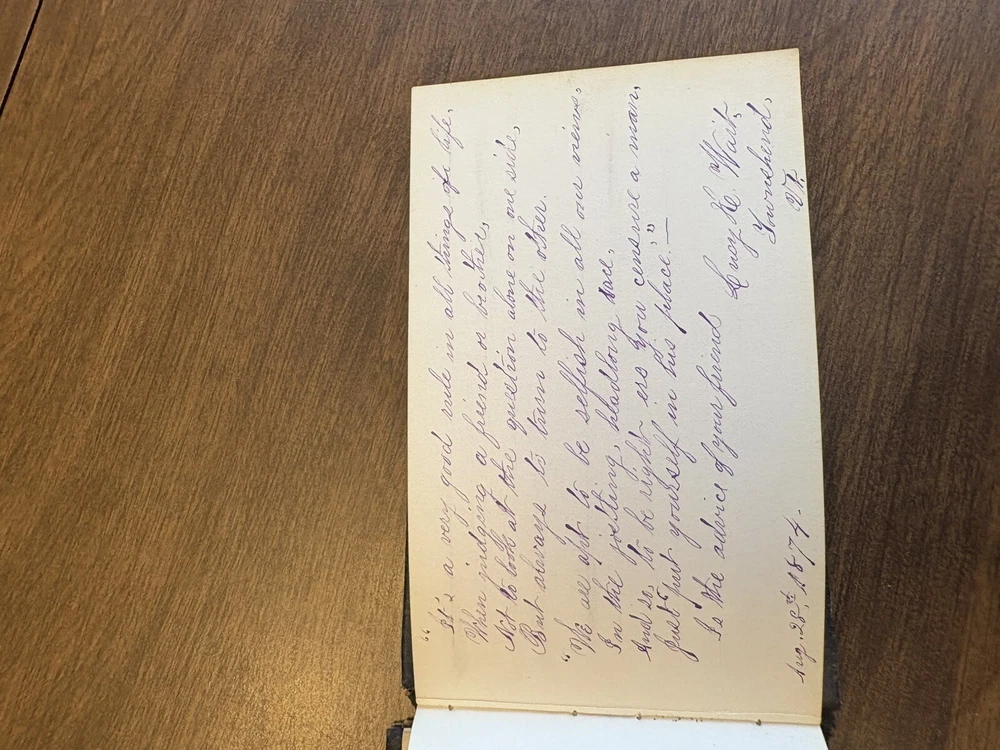 "It's a very good rule in all things of life,
When judging a friend or brother,
Not to look at the question alone on one side,
But always to turn to the other.
"We all apt to be selfish in all our views,
In the jostling, headlong race,
And so, to be right, ere you censure a man,
Just "put yourself in his place."—
Is the advice of your friend Lucy H. Wait,
Townshend,
Vt.
Aug. 28th, 1874.